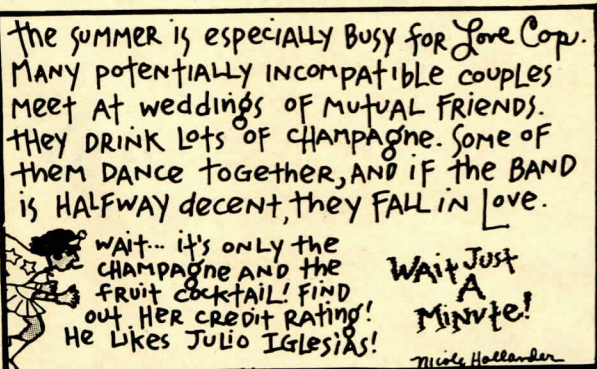 the SUMMER is especiALLY Busy for Love Cop.
MANY potentiALLY INCOMPATIBLE couples
meet At weddings of Mutual Friends.
they DRINK Lots of CHAMPAgne. Some of
them DANCE together, AND if the BAND
is HALFWAY decent, they FALL in Love.
WAit... it's only the
CHAMPAgne AND the
fruit cocktail! FIND
out Her credit RAting!
He Likes Julio IGLESIAS!
WAit Just
A
Minute!
Nicole Hollander